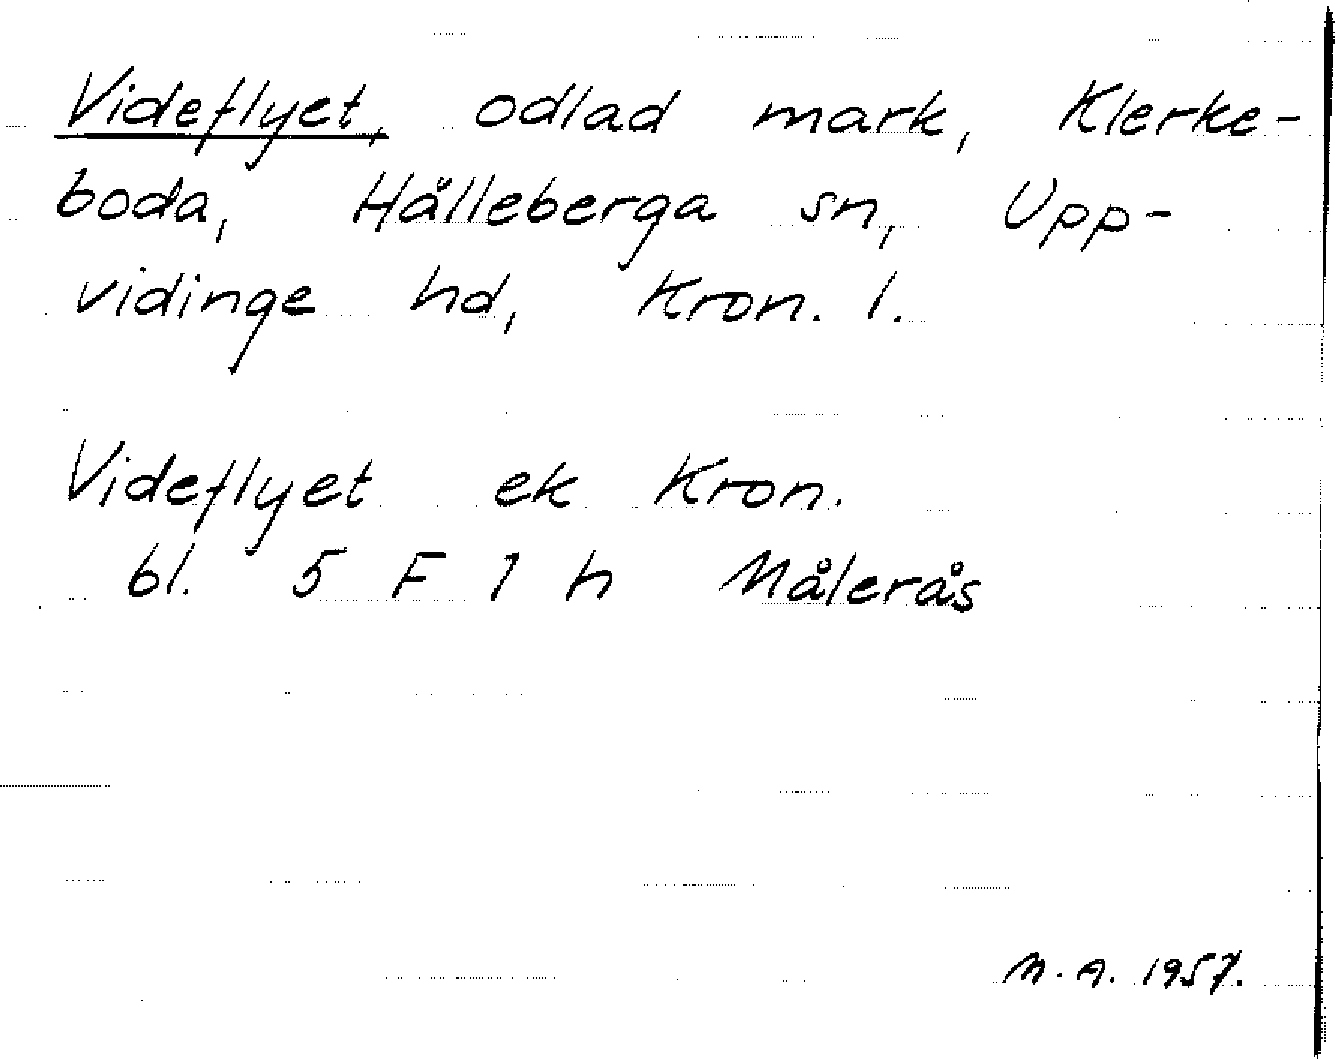 Videflyet, odlad mark, Klerke-
boda, Hålleberga sn, Upp-
vidinge hd, Kron. l.
Videflyet ek Kron.
bl. 5 F 1 h Målerås
M. A. 1957.